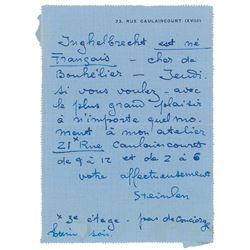 73, RUE CAULAINCOURT (XVIII)
Inghelbrecht est né
Français - cher de
Bouhélier - Jeudi.
si vous voulez - avec
le plus grand plaisir
à n'importe quel mo
ment à mon atelier
21 x Rue Caulaincourt
de 9 à 12 et de 2 à 6
votre affectueusement
Steinlen
x 3e étage. pas de concierge